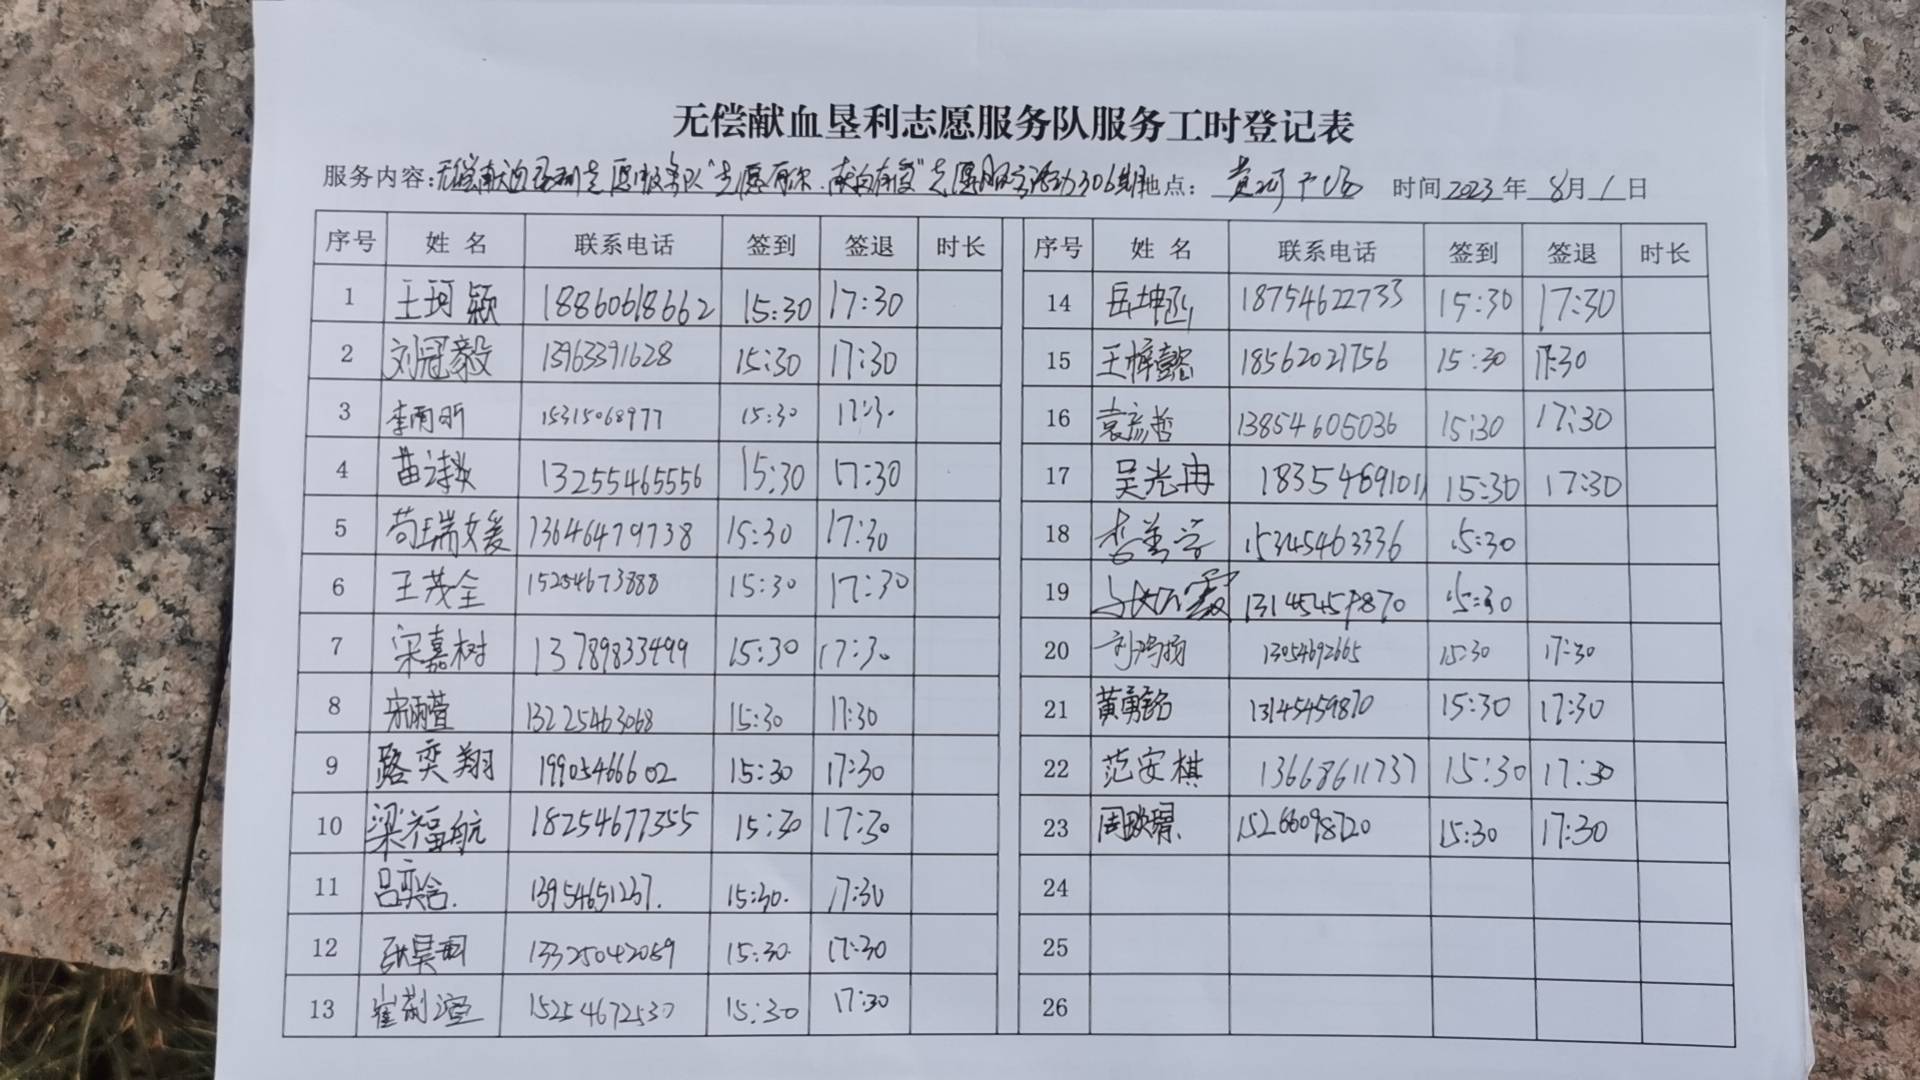 无偿献血垦利志愿服务队服务工时登记表
服务内容:无偿献血垦利志愿服务队"志愿有你、献血有爱"志愿服务活动306期 地点: 黄河广场 时间 2023 年 8 月 1 日
序号 姓名 联系电话 签到 签退 时长 序号 姓名 联系电话 签到 签退 时长
1 王珂颖 18860618662 15:30 17:30 14 岳坤 18754622733 15:30 17:30
2 刘冠毅 13963391628 15:30 17:30 15 王梓懿 18562021756 15:30 17:30
3 李雨昕 15315068977 15:30 17:3. 16 袁彦哲 13854605036 15:30 17:30
4 苗诗 13255465556 15:30 17:30 17 吴光冉 18354691011 15:30 17:30
5 苟瑞媛 13646479738 15:30 17:30 18 李 15345463336 15:30
6 王茂全 15254673888 15:30 17:30 19 15:30
7 宋嘉树 13789833499 15:30 17:30 20 刘鸿扬 13054692665 15:30 17:30
8 宋雨萱 13225463068 15:30 17:30 21 黄勇铭 13145459870 15:30 17:30
9 路奕翔 19905466602 15:30 17:30 22 范安棋 13668611737 15:30 17:30
10 梁福航 18254677355 15:30 17:30 23 周 15266098720 15:30 17:30
11 吕奕含. 13954651237. 15:30. 17:30 24
12 张昊 13325042059 15:30. 17:30 25
13 崔 15254672530 15:30 17:30 26